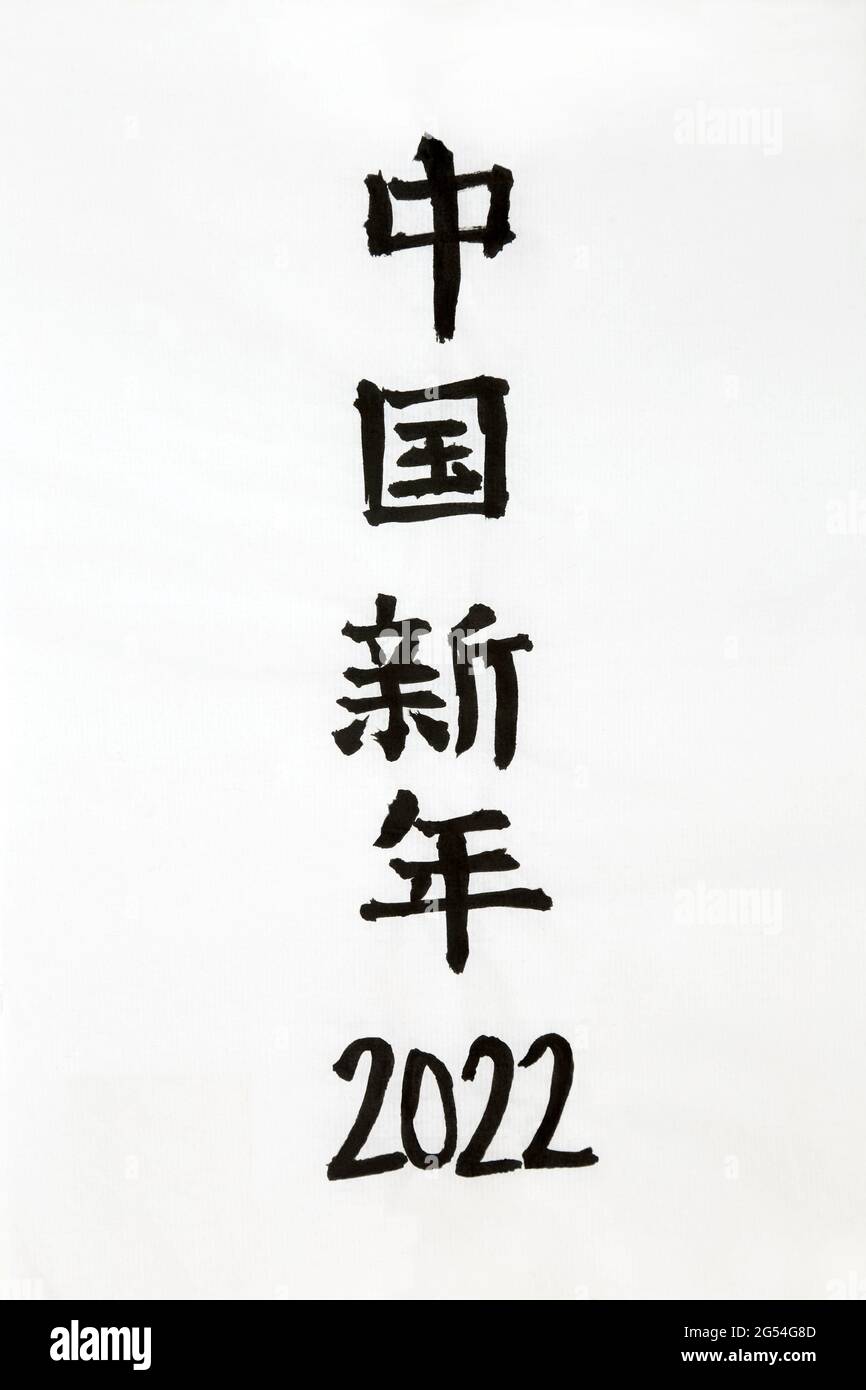 中
国
新
年
2022
alamy
alamy
alamy
Image ID: 2G54G8D
www.alamy.com